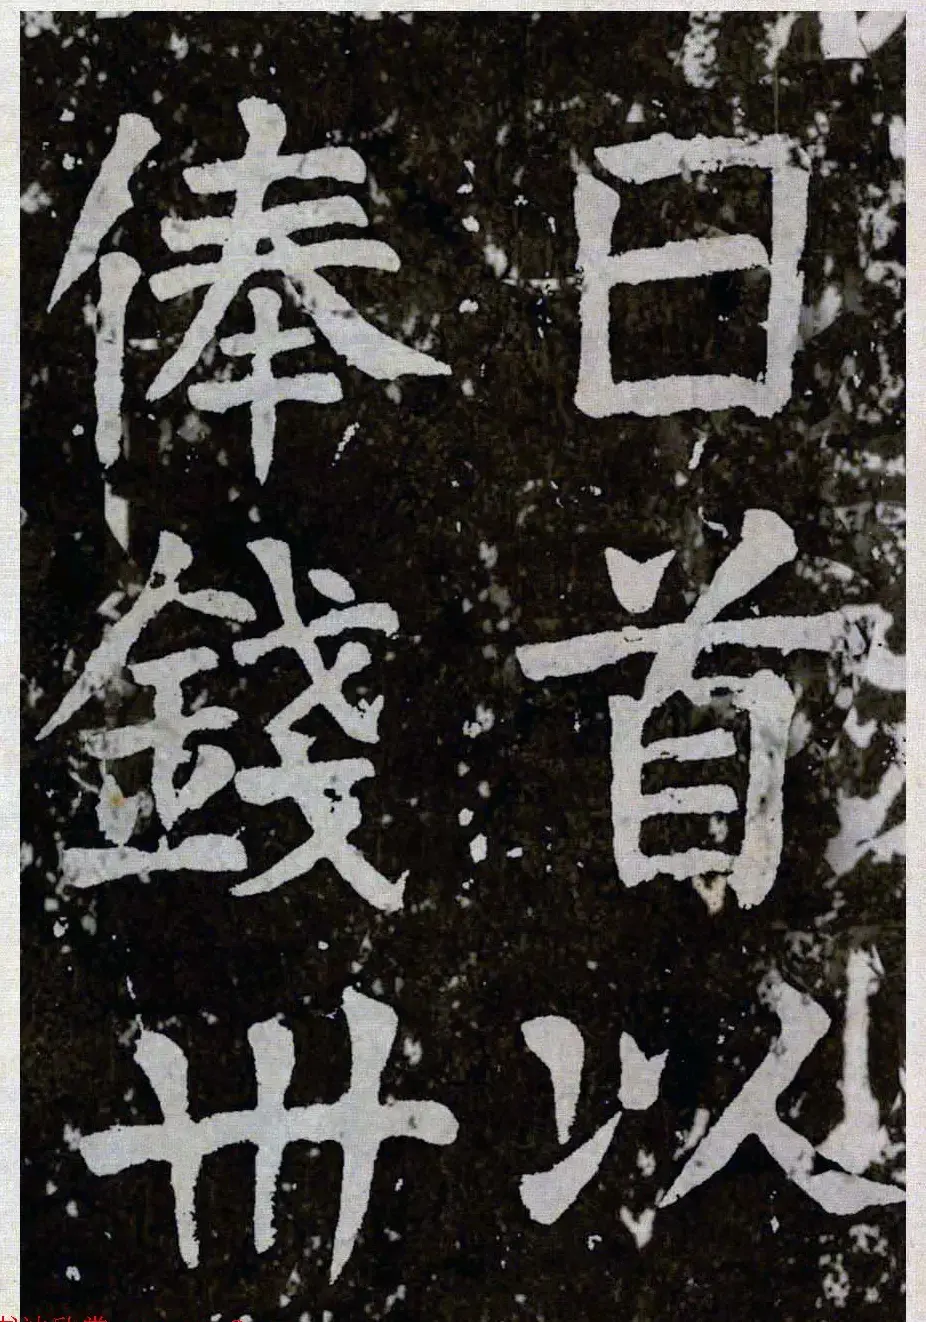 日首以
俸錢卅